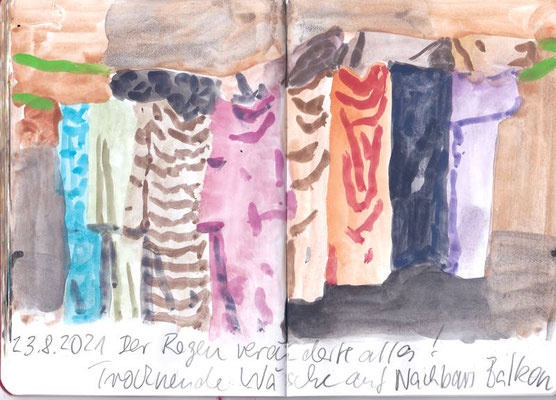 23.8.2021 Der Regen veränderte alles!
Trocknende Wäsche auf Nachbars Balkon